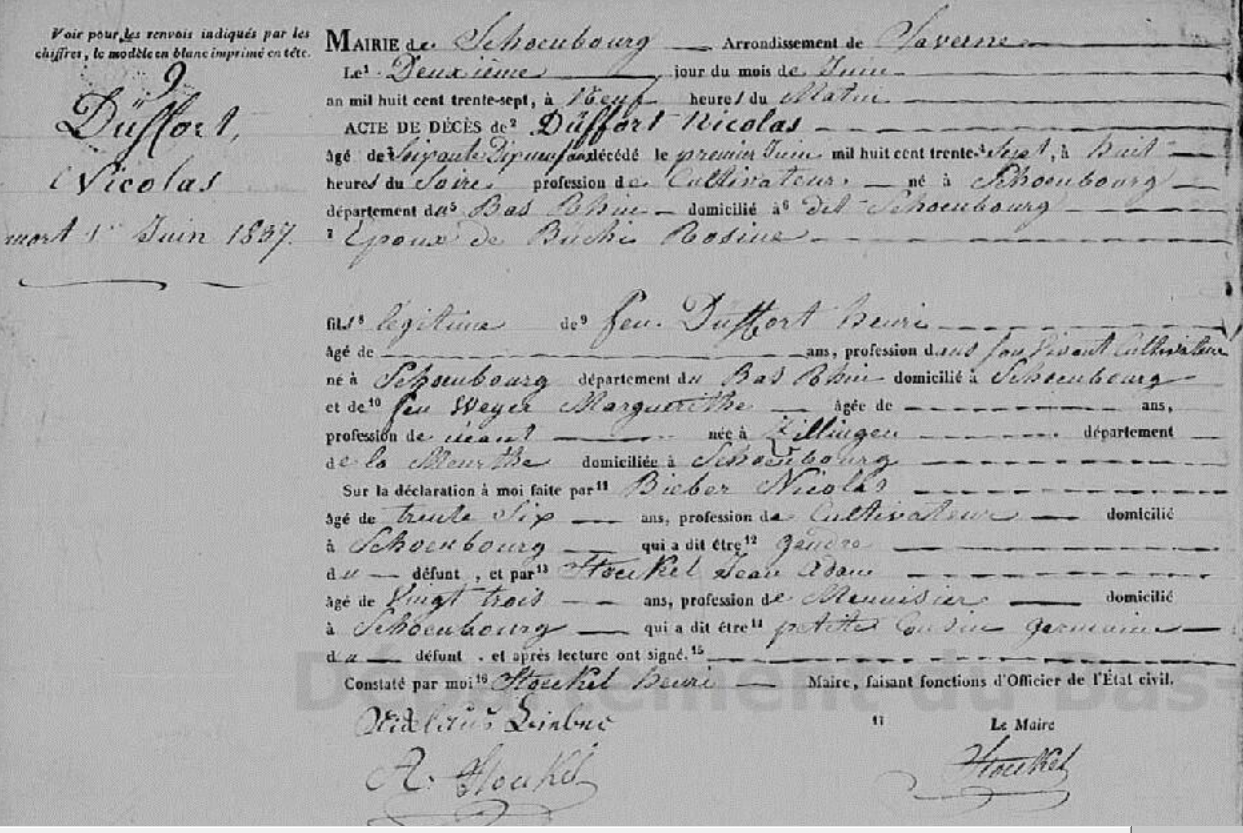 Voir pour les renvois indiqués par les
chiffres, le modèle en blanc imprimé en tête.
9
Düffort,
Nicolas
mort 1er Juin 1837.
MAIRIE de Schoenbourg Arrondissement de Saverne
Le¹ Deuxième jour du mois de Juin
an mil huit cent trente-sept, à Neuf heures du Matin
ACTE DE DÉCÈS de² Düffort Nicolas
âgé de³ Soixante Dix neuf ans décédé le premier Juin mil huit cent trente-⁴ Sept, à huit
heures du Soire profession de Cultivateur né à Schoenbourg
département du⁵ Bas Rhin domicilié à⁶ dit Schoenbourg
⁷ Epoux de Büchi Rosine
fils⁸ légitime de⁹ feu Duffort henri
âgé de ans, profession dans son vivant Cultivateur
né à Schoenbourg département du Bas Rhin domicilié à Schoenbourg
et de¹⁰ feu Weyer Marguerithe âgée de ans,
profession de néant née à Zillingen département
de la Meurthe domiciliée à Schoenbourg
Sur la déclaration à moi faite par¹¹ Bieber Nicolas
âgé de trente Six ans, profession de Cultivateur domicilié
à Schoenbourg qui a dit être¹² gendre
du défunt, et par¹³ Stoeckel Jean Adam
âgé de Vingt trois ans, profession de Menuisier domicilié
à Schoenbourg qui a dit être¹⁴ petite Cousin germaine
du défunt. et après lecture ont signé.¹⁵
Constaté par moi¹⁶ Stoekel henri Maire, faisant fonctions d'Officier de l'État civil.
A. Stoekel
¹⁷ Le Maire
Stoekel
Département du Bas-